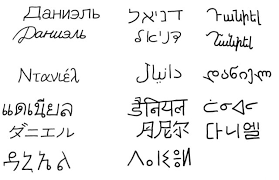 Даниэль דניאל Դանիել
Даниэль דניאל Դանիել
Ντανιέλ دانيال დანიელ
แดเนียล डेनियल
ダニエル 丹尼尔 다니엘
ዳኒኤል